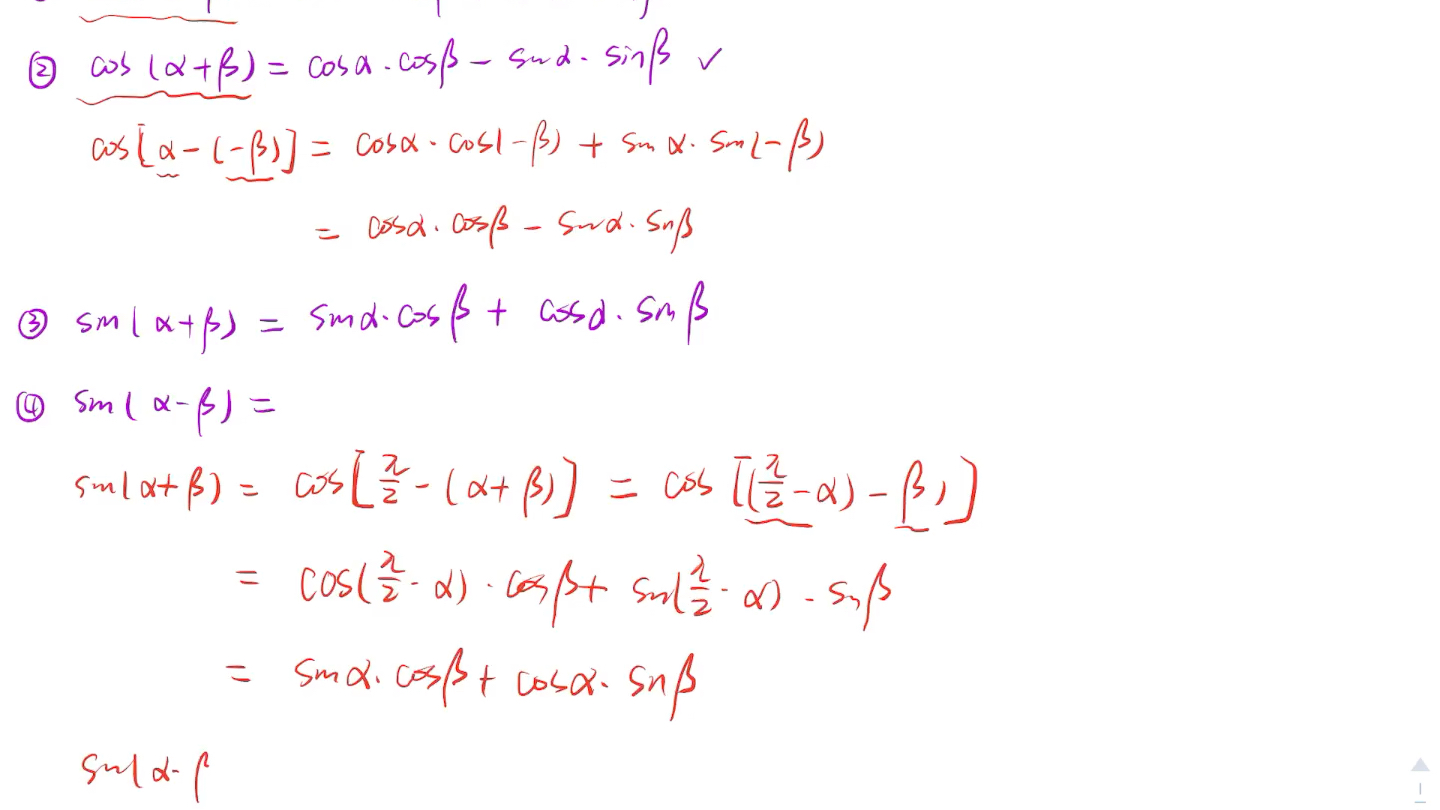 ② cos(α+β) = cosα·cosβ - sinα·sinβ ✓
cos[α-(-β)] = cosα·cos(-β) + sinα·sin(-β)
= cosα·cosβ - sinα·sinβ
③ sin(α+β) = sinα·cosβ + cosα·sinβ
④ sin(α-β) =
sin(α+β) = cos[π/2-(α+β)] = cos[(π/2-α)-β)]
= cos(π/2-α)·cosβ + sin(π/2-α)·sinβ
= sinα·cosβ + cosα·sinβ
sin(α-β